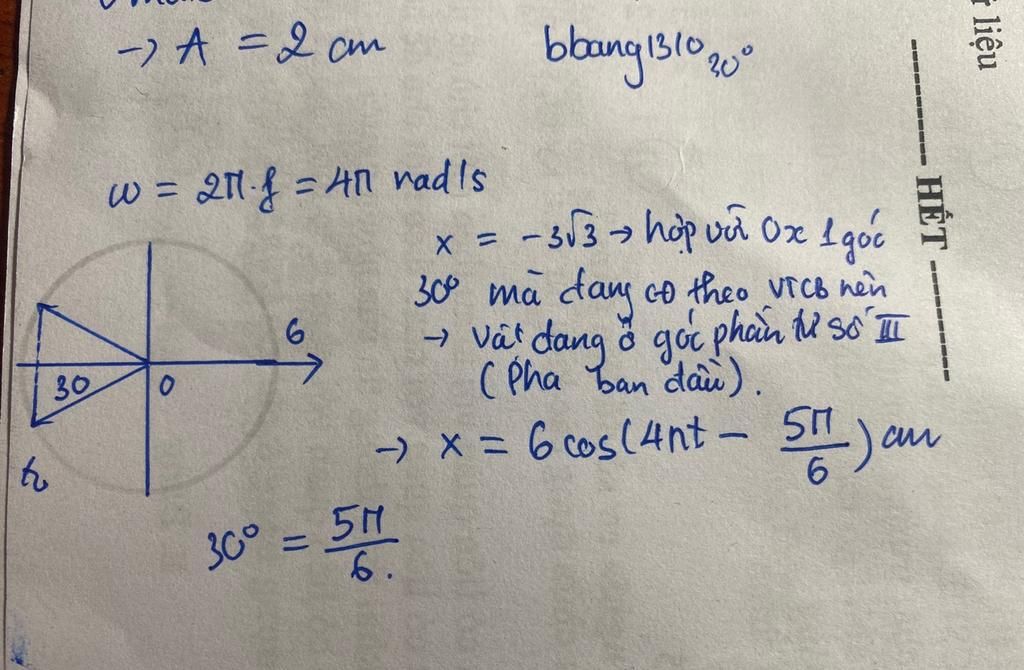 → A = 2 cm
bbang1310
30°
ư liệu
HẾT
ω = 2π.f = 4π rad/s
x = -3√3 → hợp với Ox 1 góc
30° mà đang CĐ theo VTCB nên
→ vật đang ở góc phần tư số III
(Pha ban đầu).
→ x = 6 cos(4πt - 5π/6) cm
6
30
O
30° = 5π/6.